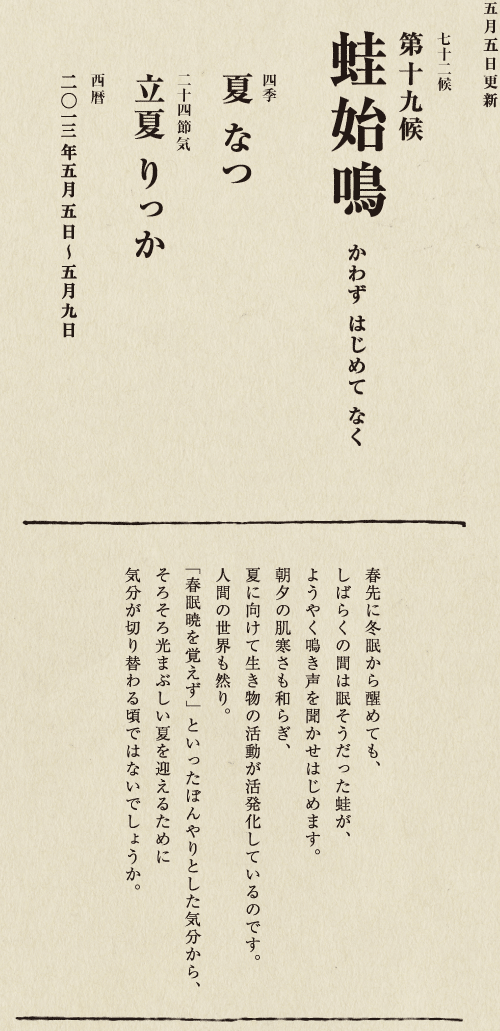 五月五日更新
七十二候
第十九候
蛙始鳴 かわず はじめて なく
四季
夏 なつ
二十四節気
立夏 りっか
西暦
二〇一三年五月五日〜五月九日
春先に冬眠から醒めても、
しばらくの間は眠そうだった蛙が、
ようやく鳴き声を聞かせはじめます。
朝夕の肌寒さも和らぎ、
夏に向けて生き物の活動が活発化しているのです。
人間の世界も然り。
「春眠暁を覚えず」といったぼんやりとした気分から、
そろそろ光まぶしい夏を迎えるために
気分が切り替わる頃ではないでしょうか。